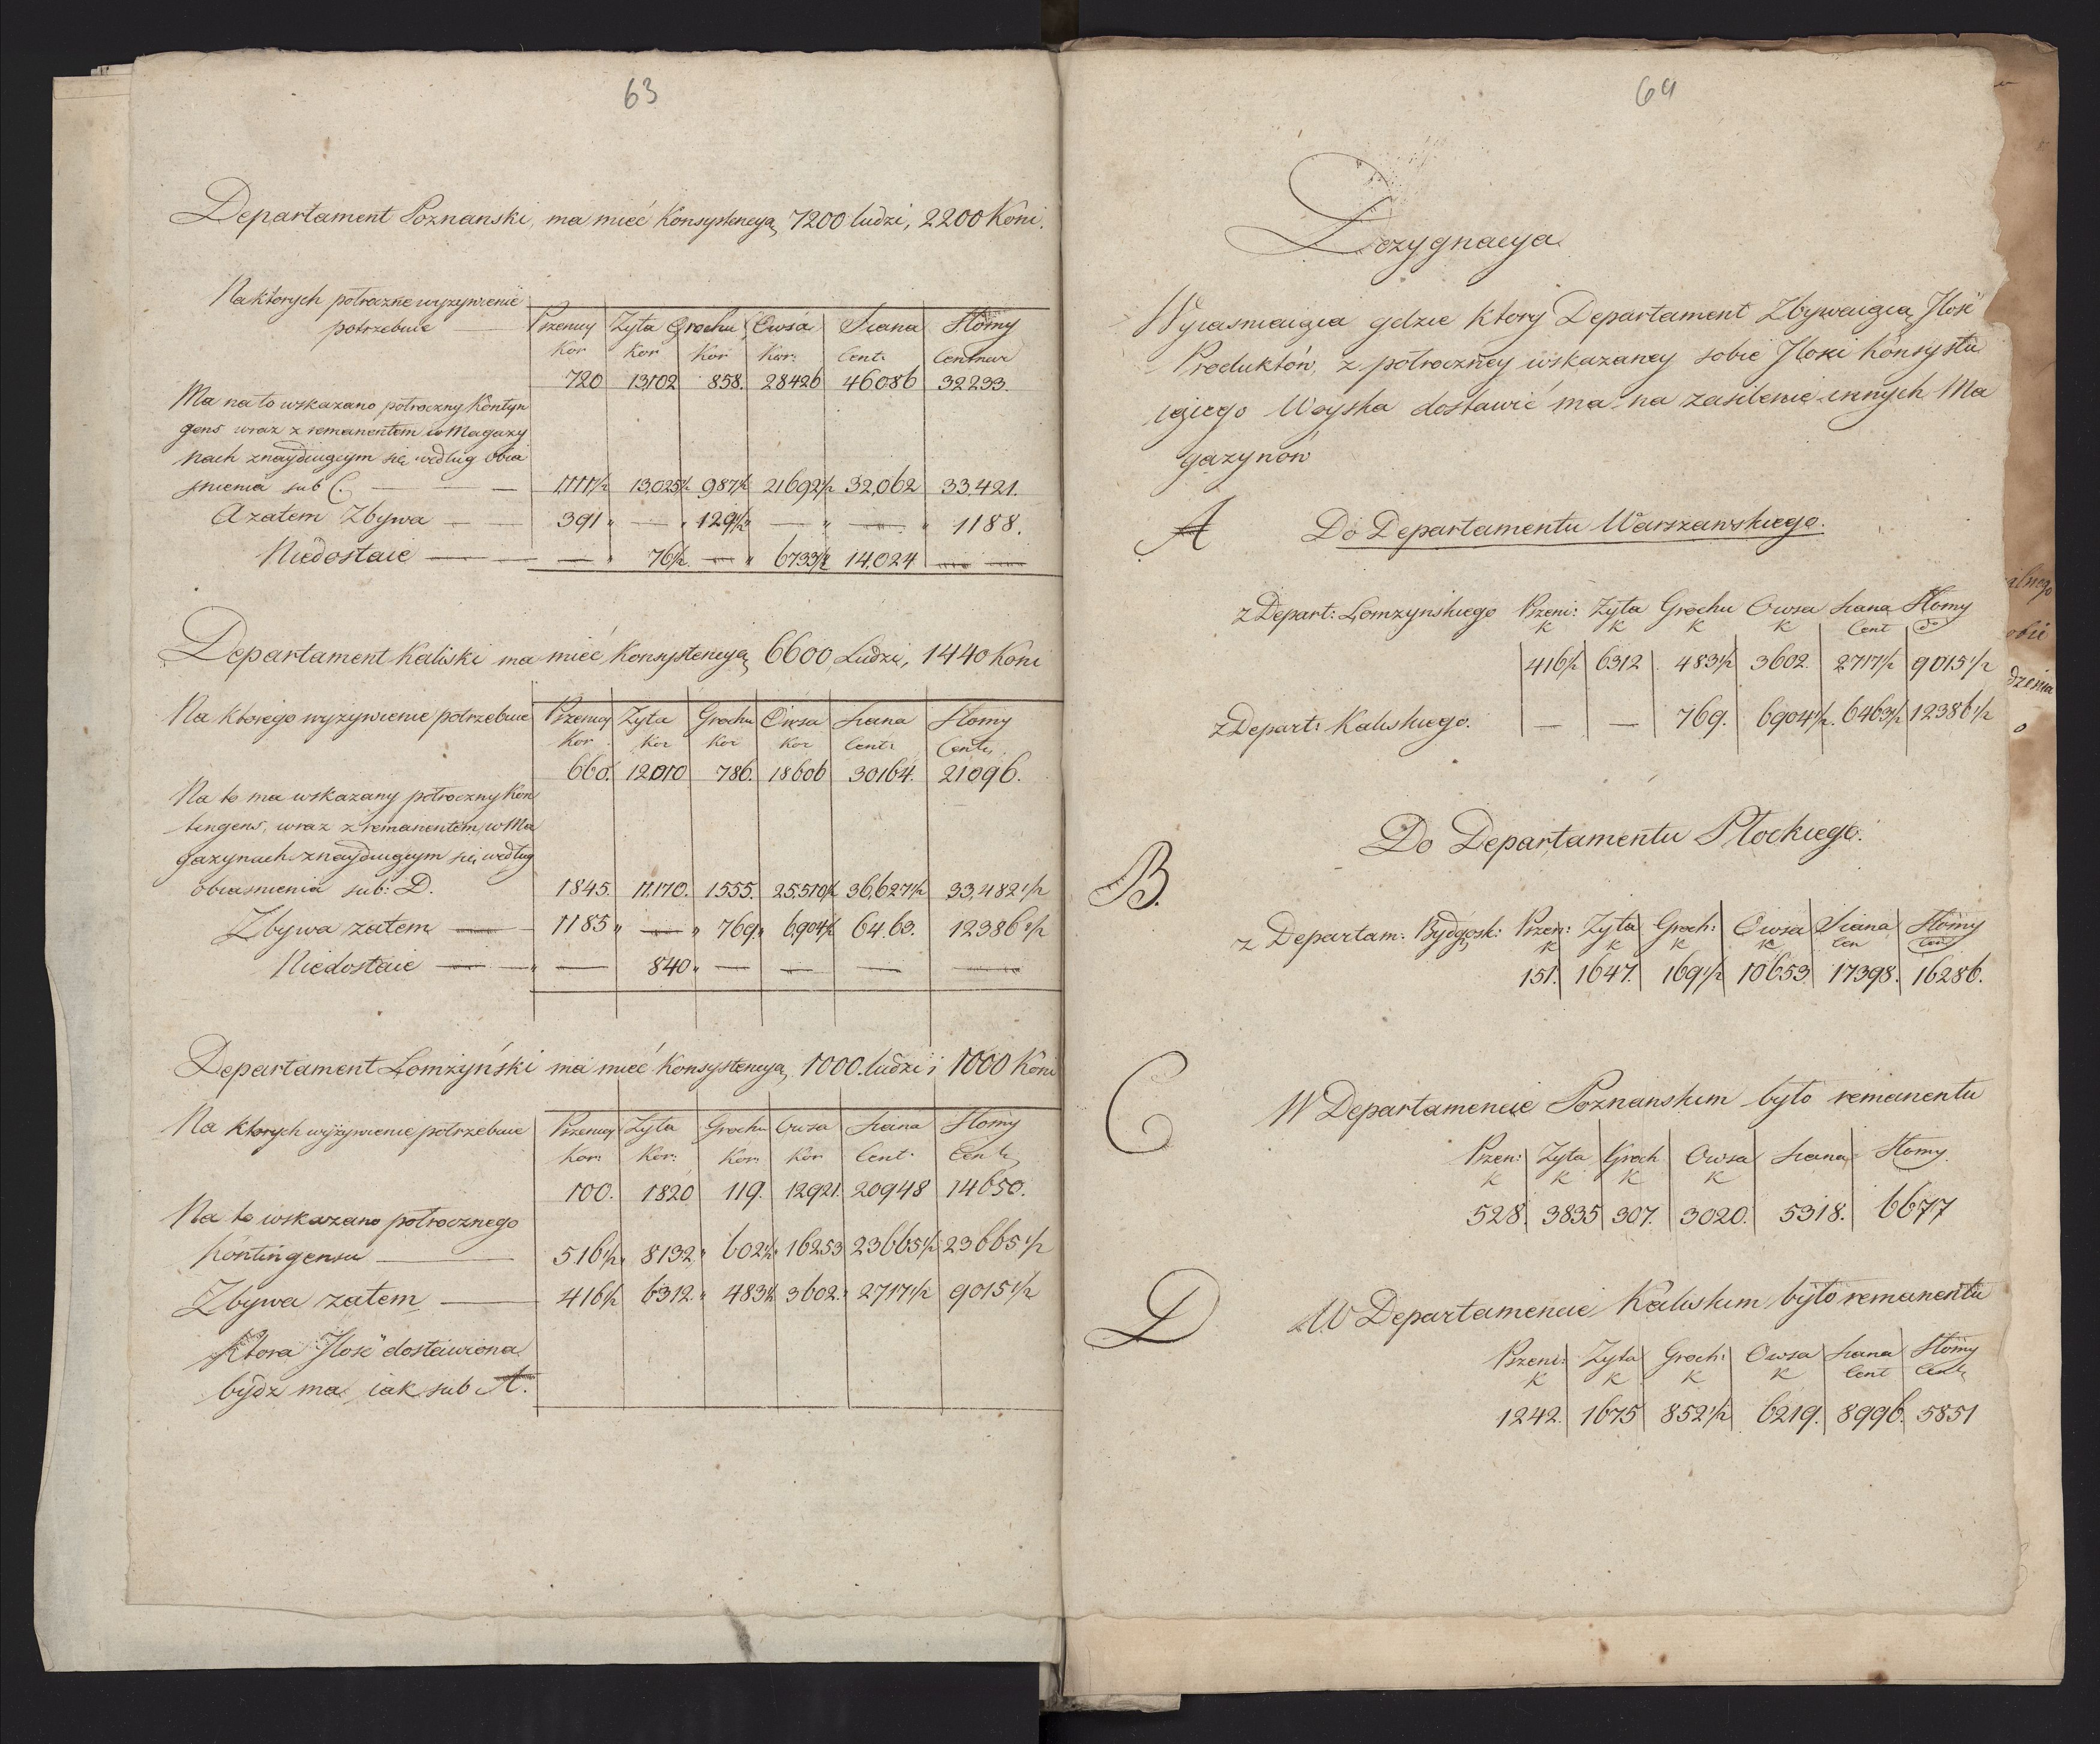 63
Departament Poznanski, ma mieć Konsystencyą 7200 ludzi, 2200 Koni.
Na ktorych potroczne wyzywienie
potrzebuie — Pszenicy Zyta Grochu Owsa Siana Słomy
Kor Kor Kor Kor: Cent: Centnar
720 13,102 858. 28426 46086 32233.
Ma na to wskazano potroczny Kontyn
gens wraz z remanentem w Magazy
nach znayduiącym się według obia
snienia sub C. — 1,111 1/2 13,025 1/2 987 1/2 21692 1/2 32,062 33,421.
A zatem Zbywa — 391 " — " 129 1/2 " — " — " 1188.
Niedostaie — — " 76 1/2 — " 6733 1/2 14,024 —
Departament Kaliski ma mieć Konsystencyą 6600 Ludzi, 1440 Koni
Na ktorego wyzywienie potrzebuie Pszenicy Zyta Grochu Owsa Siana Słomy
Kor Kor Kor Kor Cent: Cent
660. 12010 786. 18606 30164. 21096.
Na to ma wskazany potroczny Kon
tingens, wraz z remanentem, w Ma
gazynach znayduiącym się według
obiasnienia sub: D. 1845. 11,170. 1555. 25,510 1/2 36,627 1/2 33,482 1/2
Zbywa zatem — 1185 " — " 769 " 6,904 1/2 64.63. 12386 1/2
Niedostaie — " — 840 " — — — —
Departament Łomżyński ma mieć Konsystencyą 1000. ludzi i 1000 Koni
Na ktorych wyżywienie potrzebuie Pszenicy Zyta Grochu Owsa Siana Słomy
Kor: Kor: Kor: Kor Cent: Cent
100. 1820 119. 12921. 20948 14650.
Na to wskazano potrocznego
Kontingensu — 516 1/2 " 8132 " 602 1/2 " 16253 23665 1/2 23665 1/2
Zbywa zatem — 416 1/2 6312. " 483 1/2 3602. " 2717 1/2 9015 1/2
Ktora Ilość dostawiona
bydz ma iak sub A.
64
Dezygnacya
Wyiasniaiąca gdzie ktory Departament Zbywaiącą Ilość
Produktów, z potroczney wskazaney sobie Ilosci Konsystu
iącego Woyska dostawić ma na zasilenie innych Ma
gazynów
A Do Departamentu Warszawskiego.
z Depart: Łomzynskiego Pszeni: Zyta Grochu Owsa Siana Słomy
K K K K Cent do
416 1/2 6312 483 1/2 3602. 2717 1/2 9015 1/2
z Depart: Kaliskiego. — — 769. 6904 1/2. 6463 1/2 12386 1/2
B. Do Departamentu Płockiego.
z Departam: Bydgosk: Pszen: Zyta Groch: Owsa Siana Słomy
K K K K Cen Cen
151. 1647. 169 1/2 10653 17398. 16286.
C W Departamencie Poznanskim było remanentu
Pszen: Zyta Groch Owsa Siana Słomy.
K K K K
528. 3835 307. 3020. 5318. 6677
D W Departamencie Kaliskim było remanentu
Pszeni: Zyta Groch: Owsa Siana Słomy
K K K K Cent Cent
1242. 1675 852 1/2 6219. 8996. 5851